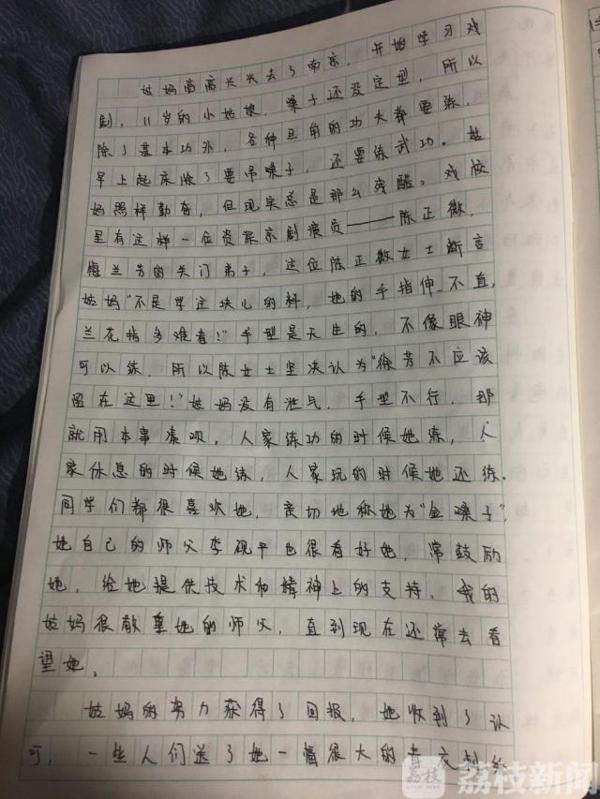 姑妈高高兴兴去了南京，开始学习戏
剧，11岁的小姑娘，嗓子还没定型，所以
除了基本功外，各种旦角的功夫都要练，
早上起床除了要吊嗓子，还要练武功。姑
妈照样勤奋，但现实总是那么残酷。戏校
里有这样一位资深京剧演员——陈正薇，
梅兰芳的关门弟子，这位陈正薇女士断言
姑妈“不是学这块儿的料，她的手指伸不直，
兰花指多难看！”手型是天生的，不像眼神
可以练，所以陈女士坚决认为“徐芳不应该
留在这里！”姑妈没有泄气，手型不行，那
就用本事凑呗，人家练功的时候她练，人
家休息的时候她练，人家玩的时候她还练。
同学们都很喜欢她，亲切地称她为“金嗓子”，
她自己的师父李砚萍也很看好她，常鼓励
她，给她提供技术和精神上的支持。我的
姑妈很敬重她的师父，直到现在还常去看
望她。
姑妈的努力获得了回报，她收到了认
可，一些人们送了她一幅很大的
荔枝 荔枝新闻